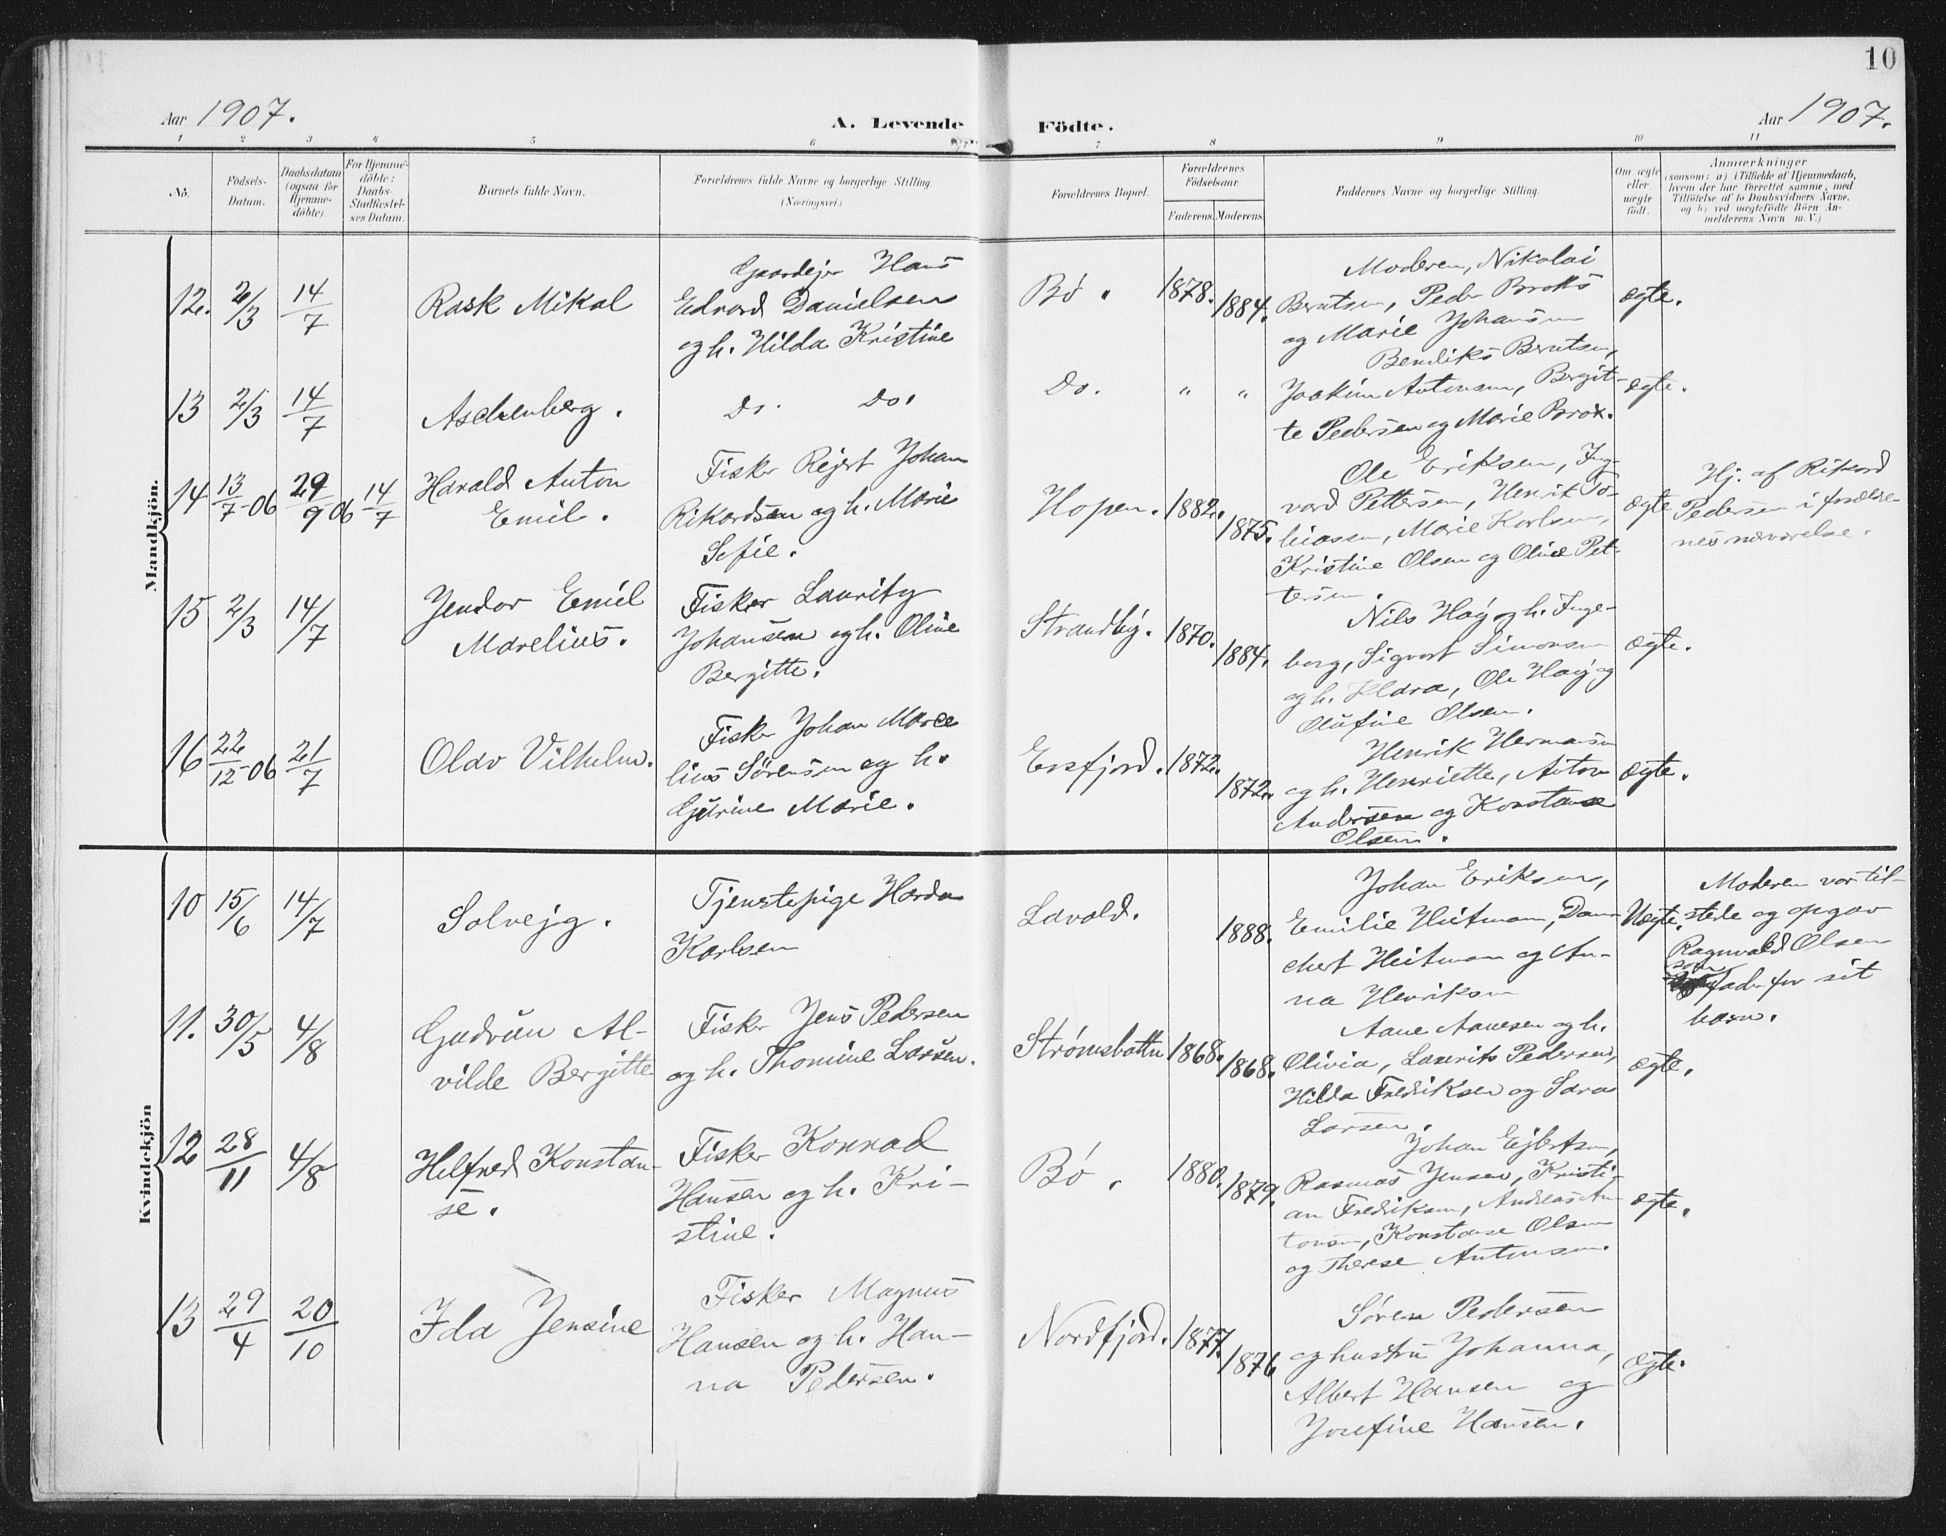 10
Aar 1907.
A. Levende Födte.
Aar 1907.
1 2 3 4 5 6 7 8 9 10 11
No.
Födsels-
Datum.
Daabsdatum
(ogsaa for
Hjemme-
döbte).
For Hjemme-
döbte:
Daabs-
Stadfæstel-
ses Datum.
Barnets fulde Navn.
Forældrenes fulde Navne og borgerlige Stilling
(Næringsvei.)
Forældrenes Bopæl.
Forældrenes
Födselsaar.
Faderens. Moderens.
Faddernes Navne og borgerlige Stilling.
Om ægte
eller
uægte
födt.
Anmærkninger
(saasom: a) i Tilfælde af Hjemmedaab,
hvem der har forrettet samme, med
Tilföielse af to Daabsvidners Navne,
og b) ved uægtefödte Börn An-
melderens Navn m. V.)
Mandkjön.
12. 2/3 14/7
Rask Mikal
Gaardejer Hans
Edvard Danielsen
og h. Hilda Kristine
Bø.
1878.
1884.
Moderen, Nikolai
Berntsen, Peder Broks
og Marie Johansen
ægte.
13 2/3 14/7
Aschenberg.
Do. Do.
Do.
" "
Bendiks Berntsen,
Joakim Antonsen, Bergit-
te Pedersen og Marie Brox.
ægte.
14 13/7-06 29/9 06 14/7
Harald Anton
Emil.
Fisker Rejert Johan
Rikardsen og h. Marie
Sofie.
Hopen.
1882.
1875.
Ole Eriksen, Ing-
vard Pettersen, Henrik To-
biassen, Marie Karlsen,
Kristine Olsen og Oline Pet-
tersen.
ægte
Hj. af Rikard
Pedersen i forældre-
nes nærværelse.
15 2/3 14/7
Jendor Emil
Marelius.
Fisker Lauritz
Johansen og h. Oline
Bergitte.
Strandby.
1870.
1884.
Nils Høy og h. Inge-
borg, Sigvart Simonsen
og h. Klara, Ole Høy og
Olufine Olsen.
ægte.
16 22/12-06 21/7
Olav Vilhelm.
Fisker Johan Marce
lius Sørensen og h.
Gjurine Marie.
Ersfjord.
1872.
1872.
Henrik Hermansen
og h. Henriette, Anton
Andersen og Konstanse
Olsen.
ægte.
Kvindekjön
10 15/6 14/7
Solvejg.
Tjenstepige Harda
Karlsen
Lavold.
1888.
Johan Eriksen,
Emilie Heitman, Dan-
chert Heitman og An-
na Henriksen
Uægte.
Moderen var til-
stede og opgav
Ragnvald Olsen
som fader for sit
barn.
11. 30/5 4/8
Gudrun Al-
vilde Bergitte
Fisker Jens Pedersen
og h. Thomine Larsen.
Strømsbotn
1868.
1868.
Aane Aanesen og h.
Olivia, Laurits Pedersen,
Hilda Fredriksen og Sara
Larsen.
ægte.
12 28/11 4/8
Helfred Konstan-
se.
Fisker Konrad
Hansen og h. Kri-
stine.
Bø.
1880.
1879.
Johan Ejbertsen,
Rasmus Jensen, Kristi-
an Fredriksen, Andreas An-
tonsen, Konstanse Olsen
og Therese Antonsen.
ægte.
13 29/4 20/10
Ida Jensine
Fisker Magnus
Hansen og h. Han-
na Pedersen.
Nordfjord.
1877.
1876
Søren Pedersen
og hustru Johanna,
Albert Hansen og
Josefine Hansen.
ægte.